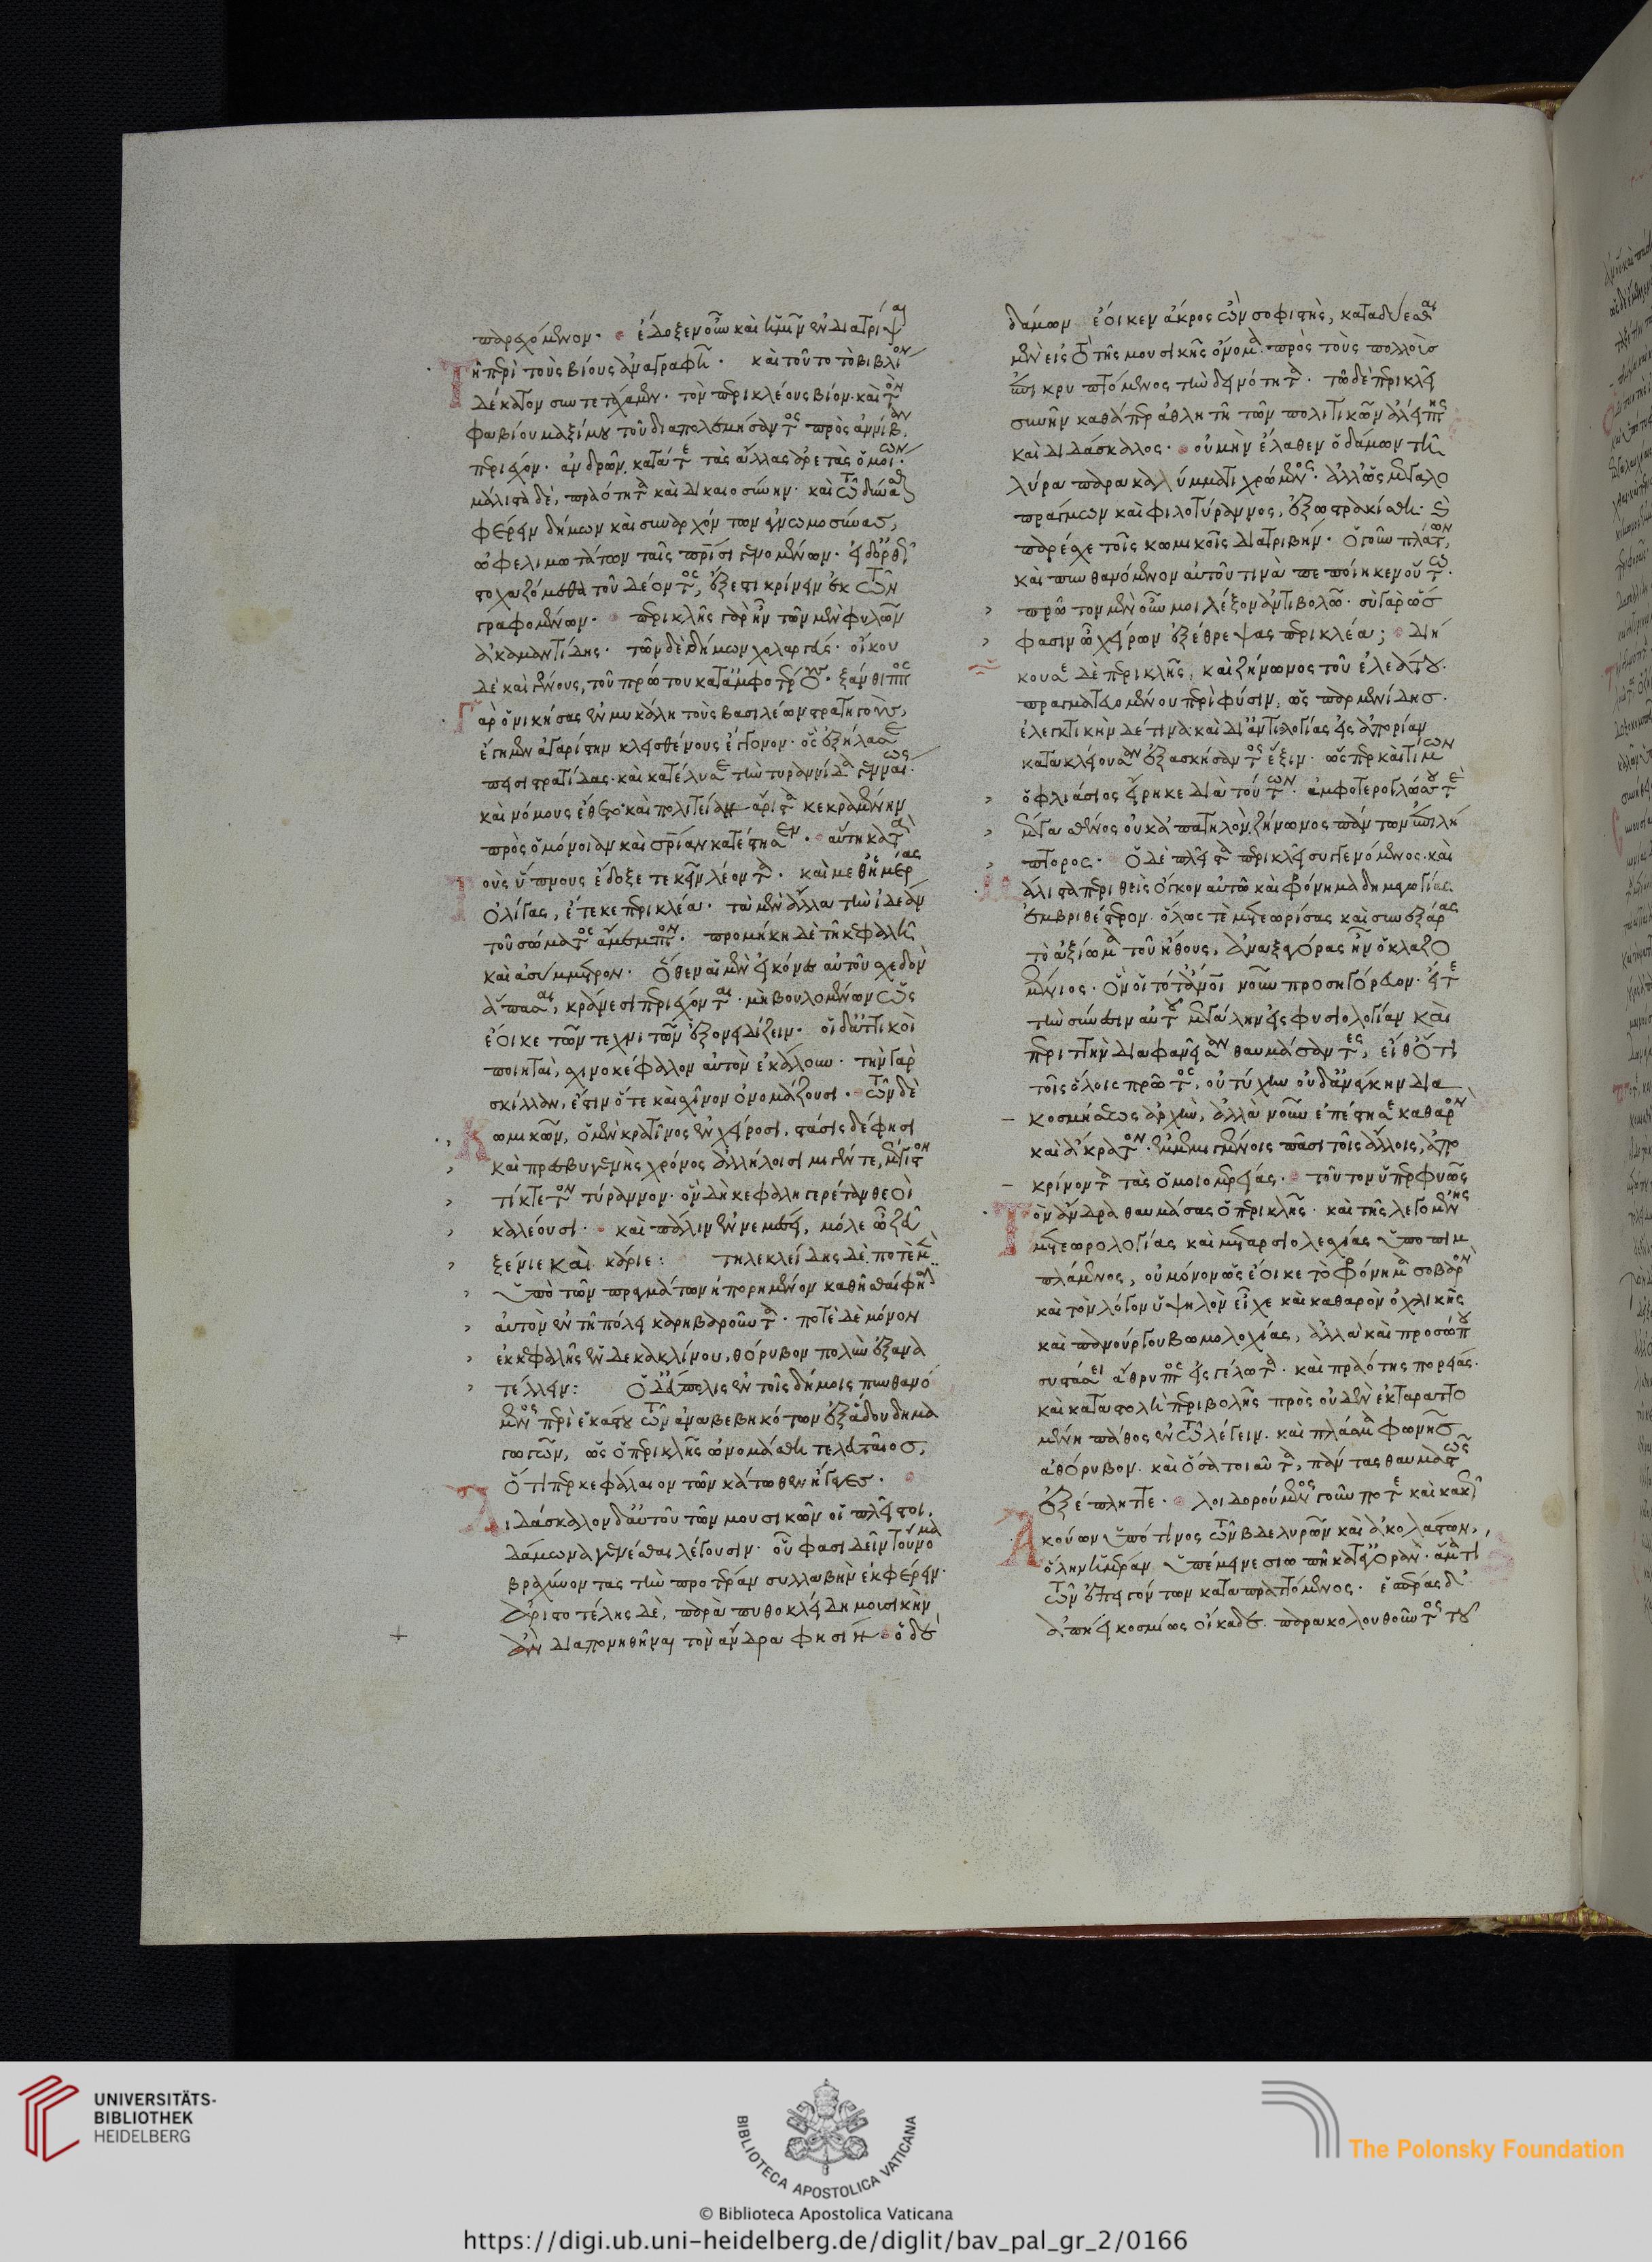 παρεχόμενον· ἔδοξεν οὖν καὶ ἡμῖν ἐνδιατρίψαι
τῆ περὶ τοὺς βίους ἀναγραφῆ. καὶ τοῦτο τὸ βιβλίον
δέκατον συντετάχαμεν· τὸν περικλέους βίον· καὶ τὸν
φαβίου μαξίμου τοῦ διαπολεμήσαντος πρὸς ἀννίβαν
περιέχον· ἀνδρῶν, κατά τε τὰς ἄλλας ἀρετὰς ὁμοίων·
μάλιστα δὲ, πραότητα καὶ δικαιοσύνην· καὶ τῶ δύνασθαι
φέρειν δήμων καὶ συναρχόντων ἀγνωμοσύνας,
ὠφελιμωτάτων ταῖς πατρίσι γενομένων· εἰ δ' ὀρθῶς
στοχαζόμεθα τοῦ δέοντος, ἔξεστι κρίνειν ἐκ τῶν
γραφομένων· περικλῆς γὰρ ἦν τῶν μὲν φυλῶν
ἀκαμαντίδης· τῶν δὲ δήμων χολαργεύς· οἴκου
δὲ καὶ γένους, τοῦ πρώτου κατ' ἀμφοτέρους· ξάνθιππος
γὰρ ὁ νικήσας ἐν μυκάλη τοὺς βασιλέως στρατηγοὺς,
ἔγημεν ἀγαρίστην κλεισθένους ἔγγονον· ὃς ἐξήλασε
πεισιστρατίδας· καὶ κατέλυσε τὴν τυραννίδα γενναίως·
καὶ νόμους ἔθετο καὶ πολιτείαν ἄριστα κεκραμένην
πρὸς ὁμόνοιαν καὶ σωτηρίαν κατέστησεν· αὕτη κατὰ
τοὺς ὕπνους ἔδοξε τεκεῖν λέοντα· καὶ μεθ' ἡμέρας
ὀλίγας, ἔτεκε περικλέα· τὰ μὲν ἄλλα τὴν ἰδέαν
τοῦ σώματος ἄμεμπτον· προμήκη δὲ τῆ κεφαλῆ
καὶ ἀσύμμετρον· ὅθεν αἱ μὲν εἰκόνες αὐτοῦ σχεδὸν
ἅπασαι, κράνεσι περιέχονται· μὴ βουλομένων ὡς
ἔοικε τῶν τεχνιτῶν ἐξονειδίζειν· οἱ δ' ἀττικοὶ
ποιηταὶ, σχινοκέφαλον αὐτὸν ἐκάλουν· τὴν γὰρ
σκίλλαν, ἔστιν ὅτε καὶ σχῖνον ὀνομάζουσι· τῶν δὲ
κωμικῶν, ὁ μὲν κρατῖνος ἐν χείρωσι, στάσις δέ φησι
καὶ πρεσβυγενὴς χρόνος ἀλλήλοισι μιγέντε, μέγιστον
τίκτετον τύραννον· ὃν δὴ κεφαληγερέταν θεοὶ
καλέουσι· καὶ πάλιν ἐν νεμέσει, μόλ' ὦ ζεῦ
ξένιε καὶ κάριε: τηλεκλείδης δὲ ποτὲ μὲν
ὑπὸ τῶν πραγμάτων ἠπορημένον καθῆσθαί φησιν
αὐτὸν ἐν τῆ πόλει καρηβαροῦντα· ποτὲ δὲ μόνον
ἐκ κεφαλῆς ἑνδεκακλίνου, θόρυβον πολὺν ἐξανα
τέλλειν: ὁ δ' εὔπολις ἐν τοῖς δήμοις πυνθανό
μενος περὶ ἑκάστου τῶν ἀναβεβηκότων ἐξ ἅδου δημα
γωγῶν, ὡς ὁ περικλῆς ὠνομάσθη τελευταῖος,
ὅ τι περ κεφάλαιον τῶν κάτωθεν ἤγαγες.
διδάσκαλον δ' αὐτοῦ τῶν μουσικῶν οἱ πλεῖστοι,
δάμωνα γενέσθαι λέγουσιν· οὗ φασι δεῖν τοὔνομα
βραχύνοντας τὴν προτέραν συλλαβὴν ἐκφέρειν·
ἀριστοτέλης δὲ, παρὰ πυθοκλείδη μουσικὴν
διαπονηθῆναι τὸν ἄνδρα φησίν· ὁ δὲ
δάμων ἔοικεν ἄκρος ὢν σοφιστὴς, καταδύεσθαι
μὲν εἰς τὸ τῆς μουσικῆς ὄνομα πρὸς τοὺς πολλοὺς
ἐπικρυπτόμενος τὴν δεινότητα· τῶ δὲ περικλεῖ
συνῆν καθάπερ ἀθλητῆ τῶν πολιτικῶν ἀλείπτης
καὶ διδάσκαλος· οὐ μὴν ἔλαθεν ὁ δάμων τῆ
λύρα παρακαλύμματι χρώμενος· ἀλλ' ὡς μεγαλο
πράγμων καὶ φιλοτύραννος, ἐξωστρακίσθη· καὶ
παρέσχε τοῖς κωμικοῖς διατριβήν· ὁ γοῦν πλάτων,
καὶ πυνθανόμενον αὐτοῦ τινα πεποίηκεν οὕτω·
πρῶτον μὲν οὖν μοι λέξον ἀντιβολῶ· σὺ γὰρ ὥς
φασιν ὦ χείρων ἐξέθρεψας περικλέα; διή
κουσε δὲ περικλῆς, καὶ ζήνωνος τοῦ ἐλεάτου·
πραγματευομένου περὶ φύσιν, ὡς παρμενίδης·
ἐλεγκτικὴν δέ τινα καὶ δι' ἀντιλογίας εἰς ἀπορίαν
κατακλείουσαν ἐξασκήσαντος ἕξιν· ὥς περ καὶ τίμων
ὁ φλιάσιος εἴρηκε διὰ τούτων· ἀμφοτερογλώσσου τε
μέγα σθένος οὐκ ἀπατηλὸν, ζήνωνος πάντων ἐπιλή
πτορος· ὁ δὲ πλεῖστα περικλεῖ συγγενόμενος· καὶ
μάλιστα περιθεὶς ὄγκον αὐτῶ καὶ φρόνημα δημαγωγίας
ἐμβριθέστερον· ὅλως τε μετεωρίσας καὶ συνεξάρας
τὸ ἀξίωμα τοῦ ἤθους, ἀναξαγόρας ἦν ὁ κλαζο
μένιος· ὃν οἱ τότ' ἄνθρωποι νοῦν προσηγόρευον· εἴτε
τὴν σύνεσιν αὐτοῦ μεγάλην εἰς φυσιολογίαν καὶ
περιττὴν διαφανεῖσαν θαυμάσαντες, εἴθ' ὅτι
τοῖς ὅλοις πρῶτος, οὐ τύχην οὐδ' ἀνάγκην δια
κοσμήσεως ἀρχὴν, ἀλλὰ νοῦν ἐπέστησε καθαρὸν
καὶ ἄκρατον· ἐμμεμιγμένοις πᾶσι τοῖς ἄλλοις, ἀπο
κρίνοντα τὰς ὁμοιομερείας· τοῦτον ὑπερφυῶς
τὸν ἄνδρα θαυμάσας ὁ περικλῆς· καὶ τῆς λεγομένης
μετεωρολογίας καὶ μεταρσιολεσχίας ὑποπιμ
πλάμενος, οὐ μόνον ὡς ἔοικε τὸ φρόνημα σοβαρὸν
καὶ τὸν λόγον ὑψηλὸν εἶχε καὶ καθαρὸν ὀχλικῆς
καὶ πανούργου βωμολοχίας, ἀλλὰ καὶ προσώπου
σύστασις ἄθρυπτος εἰς γέλωτα· καὶ πραότης πορείας·
καὶ καταστολὴ περιβολῆς πρὸς οὐδὲν ἐκταραττο
μένη πάθος ἐν τῶ λέγειν· καὶ πλάσμα φωνῆς
ἀθόρυβον· καὶ ὅσα τοιαῦτα, πάντας θαυμαστῶς
ἐξέπληττε· λοιδορούμενος γοῦν ποτε καὶ κακῶς
ἀκούων ὑπό τινος τῶν βδελυρῶν καὶ ἀκολάστων,
ὅλην ἡμέραν ὑπέμεινε σιωπῆ κατ' ἀγορὰν· ἅμα τι
τῶν ἐπειγόντων καταπραττόμενος· ἑσπέρας δ'
ἀπήει κοσμίως οἴκαδε παρακολουθοῦντος τοῦ
UNIVERSITÄTS-
BIBLIOTHEK
HEIDELBERG
BIBLIOTECA APOSTOLICA VATICANA
The Polonsky Foundation
© Biblioteca Apostolica Vaticana
https://digi.ub.uni-heidelberg.de/diglit/bav_pal_gr_2/0166